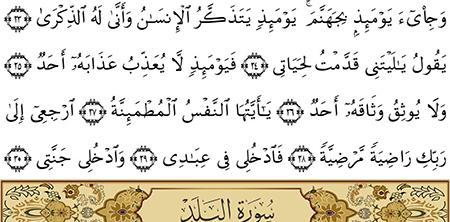 وَجِا۟ىٓءَ يَوْمَئِذٍۭ بِجَهَنَّمَ ۚ يَوْمَئِذٍ يَتَذَكَّرُ ٱلْإِنسَـٰنُ وَأَنَّىٰ لَهُ ٱلذِّكْرَىٰ ﴿٢٣﴾
يَقُولُ يَـٰلَيْتَنِى قَدَّمْتُ لِحَيَاتِى ﴿٢٤﴾ فَيَوْمَئِذٍ لَّا يُعَذِّبُ عَذَابَهُۥٓ أَحَدٌ ﴿٢٥﴾
وَلَا يُوثِقُ وَثَاقَهُۥٓ أَحَدٌ ﴿٢٦﴾ يَـٰٓأَيَّتُهَا ٱلنَّفْسُ ٱلْمُطْمَئِنَّةُ ﴿٢٧﴾ ٱرْجِعِىٓ إِلَىٰ
رَبِّكِ رَاضِيَةً مَّرْضِيَّةً ﴿٢٨﴾ فَٱدْخُلِى فِى عِبَـٰدِى ﴿٢٩﴾ وَٱدْخُلِى جَنَّتِى ﴿٣٠﴾
سُورَةُ ٱلْبَلَدِ